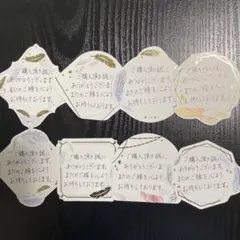 ご購入頂き誠に
ありがとうございます。
またのご縁を心より
お待ちしております。
ご購入頂き誠に
ありがとうございます。
またのご縁を心より
お待ちしております。
ご購入頂き誠に
ありがとうございます。
またのご縁を心より
お待ちしております。
ご購入頂き誠に
ありがとうございます。
またのご縁を心より
お待ちしております。
ご購入頂き誠に
ありがとうございます。
またのご縁を心より
お待ちしております。
ご購入頂き誠に
ありがとうございます。
またのご縁を心より
お待ちしております。
ご購入頂き誠に
ありがとうございます。
またのご縁を心より
お待ちしております。
ご購入頂き誠に
ありがとうございます。
またのご縁を心より
お待ちしております。